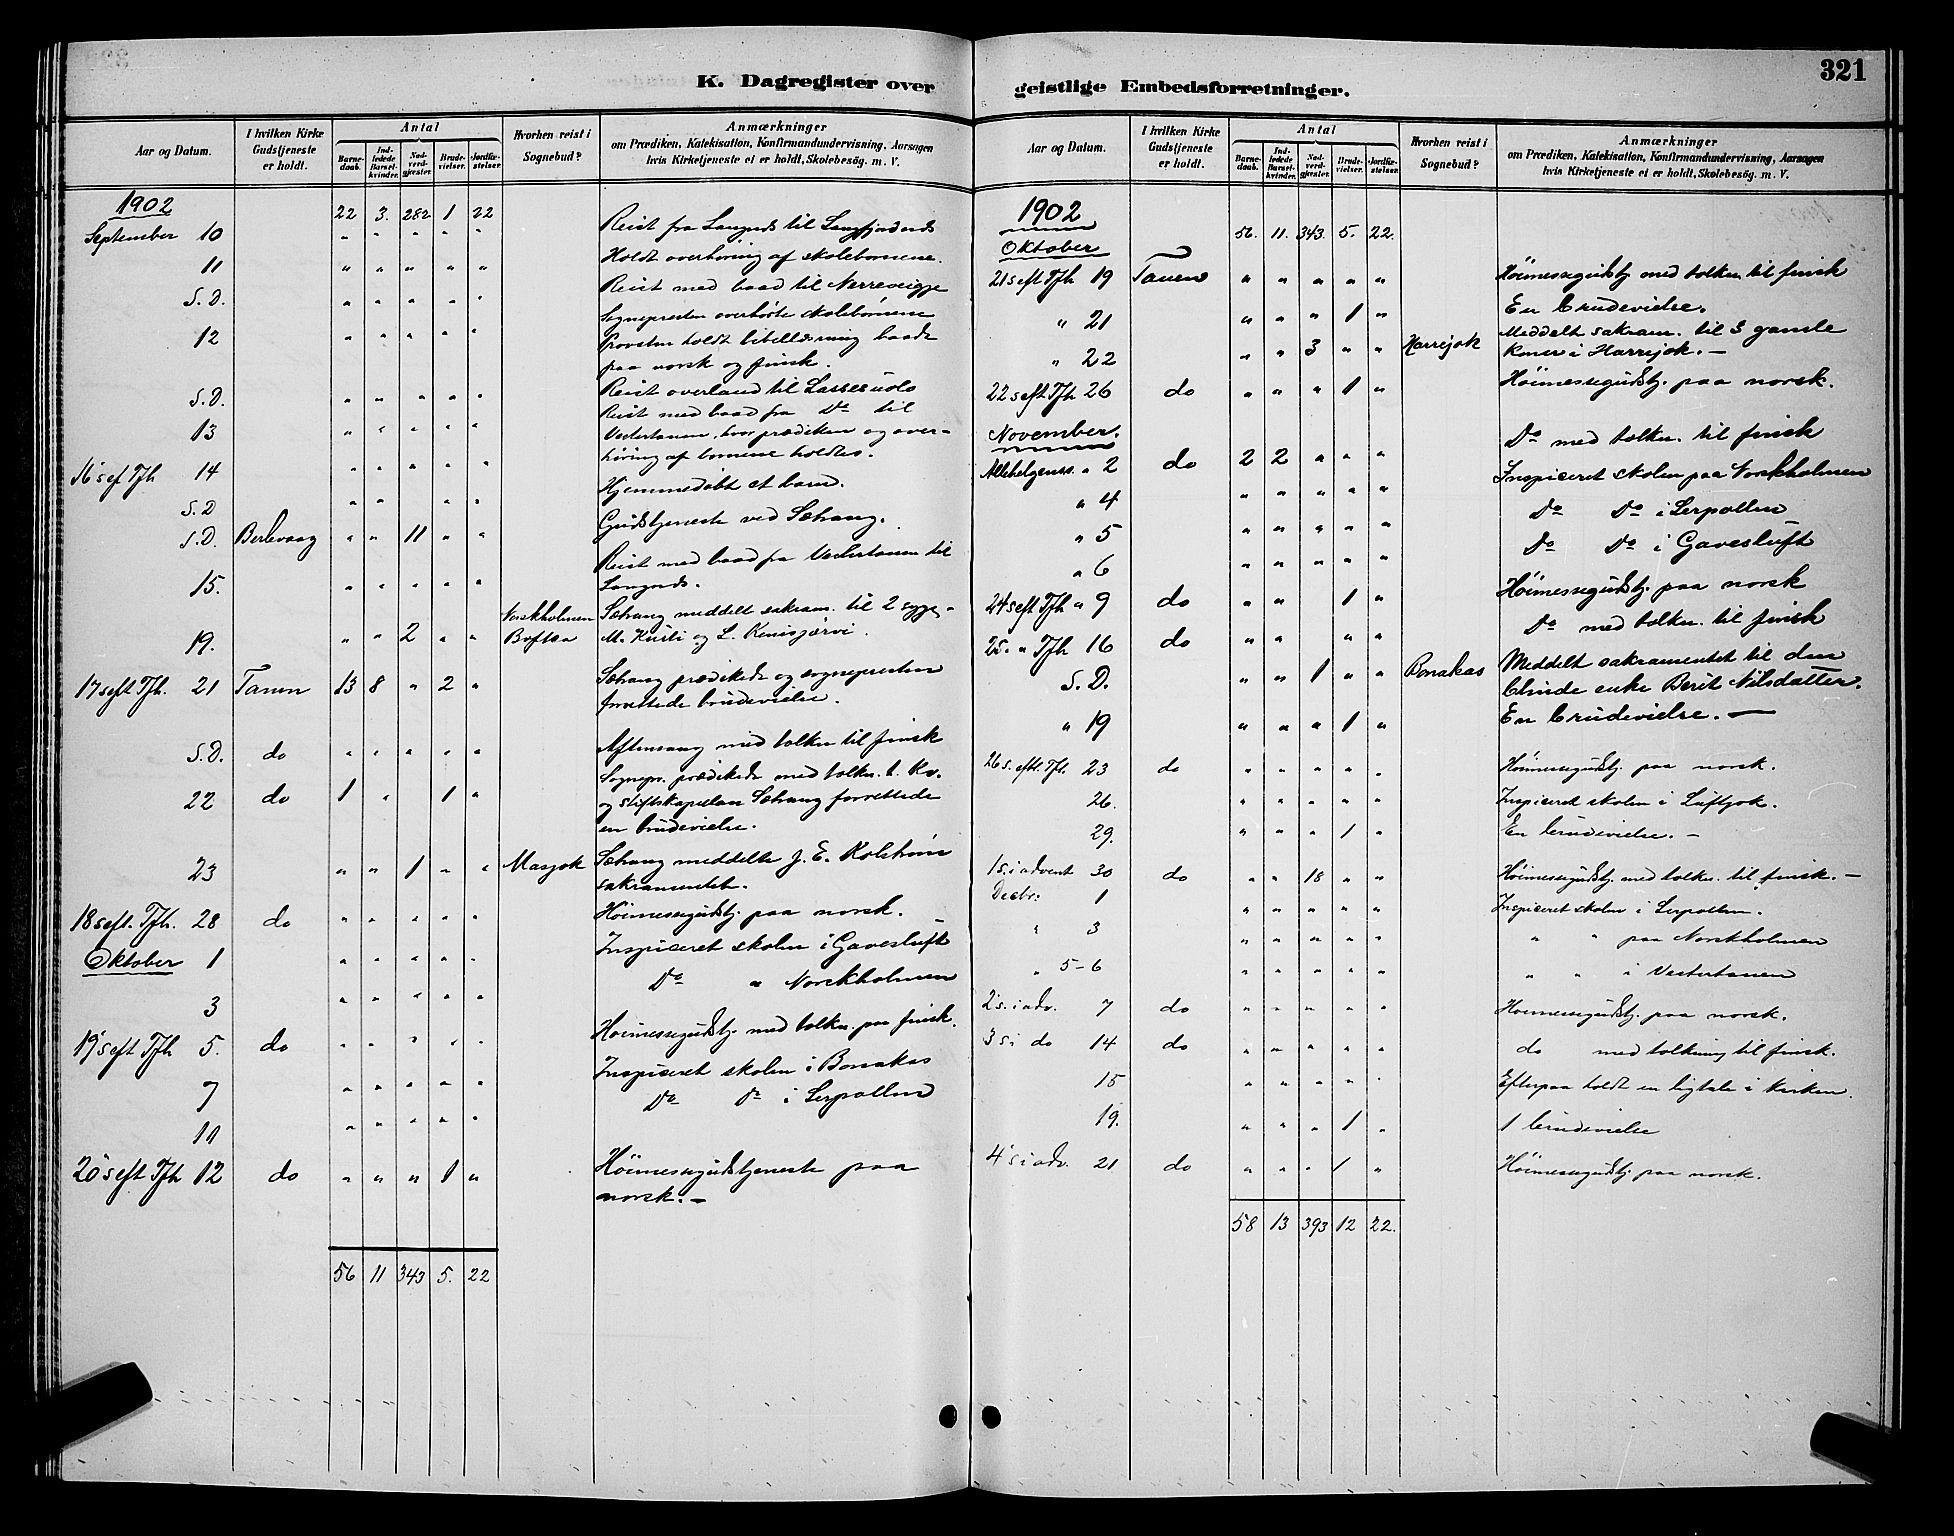 321
K. Dagregister over geistlige Embedsforretninger.
Aar og Datum. I hvilken Kirke Gudstjeneste er holdt. Antal Barnedaab. Indledede Barselkvinder. Nadverdgjester. Brudevielser. Jordfæstelser. Hvorhen reist i Sognebud? Anmærkninger om Prædiken, Katekisation, Konfirmandundervisning, Aarsagen hvis Kirketjeneste ei er holdt, Skolebesög. m. V.
1902 22 3. 282 1 22
September 10 " " " " " Reist fra Langnes til Langfjordnes
11 " " " " " Holdt overhöring af skolebörnene.
S.D. " " " " " Reist med baad til
12 " " " " " Sognepresten overhörte skolebörnene
Provsten holdt bibellæsning baade
paa norsk og finsk.
S.D. " " " " " Reist overland til
13 " " " " " Reist med baad fra Do til
Vestertanen, hvor prædiken og over-
höring af börnene holdtes.
16 s ef Tfh 14 " " " " " Hjemmedöbt et barn.
S.D " " " " " Gudstjeneste ved Sæhang.
S.D. Berlevaag " " 11 " "
15. " " " " " Reist med baad fra Vestertanen til
Langnes.
19. " " 2 " " Norskholmen Boftsa Sæhang meddelt sakram. til 2 syge,-
M. Kusli og L. Kenisjärvi.
17 s eft Tfh. 21 Tanen 13 8 " 2 " Sæhang prædikede og sognepresten
forrettede brudevielse.
S.D. do " " " " " Aftensang med tolken til finsk
22 do 1 " 1 " Sognepr. prædikede med tolkn. t. Kv.
og stiftskapelan Sæhang forrettede
en brudevielse.
23 " " 1 " " Masjok Sæhang meddelte J. E. Kolström
sakramentet.
18 s eft. Tfh. 28 do " " " " " Höimessegudstj. paa norsk.
Oktober 1 " " " " " Inspiceret skolen i Gavesluft
3 " " " " " Do " Norskholmen
19 s eft Tfh 5. do " " " " " Höimessegudstj. med tolkn. paa finsk.
7 " " " " " Inspiceret skolen i Bonakas
11 " " " " " Do Do i Serpollen
20 s eft Tfh 12 do " " " 1 " Höimessegudstjeneste paa
norsk.-
56 11 343 5. 22
Aar og Datum. I hvilken Kirke Gudstjeneste er holdt. Antal Barnedaab. Indledede Barselkvinder. Nadverdgjester. Brudevielser. Jordfæstelser. Hvorhen reist i Sognebud? Anmærkninger om Prædiken, Katekisation, Konfirmandundervisning, Aarsagen hvis Kirketjeneste ei er holdt, Skolebesög. m. V.
1902 56. 11. 343. 5. 22.
Oktober
21 s eft Tfh 19 Tanen " " " " " Höimessegudstj med tolkn. til finsk
" 21 " " " 1 " En brudevielse.
" 22 " " 3 " " Harrejok Meddelt sakram. til 3 gamle
koner i Harrejok.-
22 s eft Tfh 26 do " " " 1 " Höimessegudstj. paa norsk.
November.
Allehelgenss. " 2 do 2 2 " " " Do med tolkn. til finsk
" 4 " " " " " Inspiceret skolen paa Norskholmen
" 5 " " " " " Do Do i Serpollen
" 6 " " " " " Do Do i Gavesluft
24 s eft Tfh " 9 do " " 1 " Höimessegudstj. paa norsk
25. " Tfh 16 do " " " " Do med tolkn. til finsk
S.D. " " 1 " " Bonakas Meddelt sakramentet til den
blinde enke Berit Nilsdatter.
" 19 " " " 1 " En brudevielse.-
26 s. eft. Tfh. 23 do " " " " " Höimessegudstj. paa norsk.
26. " " " " " Inspiceret skolen i Luftjok.
29. " " " 1 " En brudevielse.-
1 s. i advent 30 do " " 18 " " Höimessegudstj. med tolkn. til finsk.-
Decbr: 1 " " " " " Inspiceret skolen i Serpollen.
" 3 " " " " " " " paa Norskholmen
" 5-6 " " " " " " " i Vestertanen
2 s. i adv. 7 do " " " " " Höimessegudstj. paa norsk.
3 s i do 14 do " " " " " do med tolkning til finsk.
15 " " " " " Efterpaa holdt en ligtale i kirken.
19. " " " 1 " 1 brudevielse
4 s i adv. 21 do " " " 1 " Höimessegudstj. paa norsk.
58 13 393 12 22.